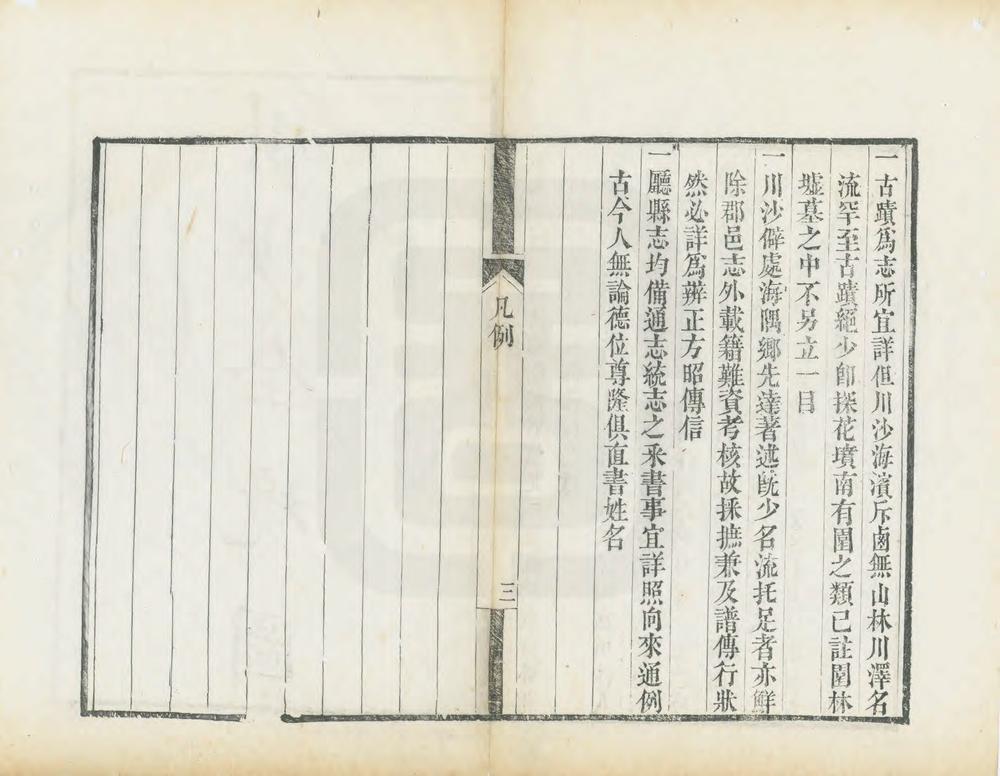 一古蹟爲志所宜詳但川沙海濱斥鹵無山林川澤名
流罕至古蹟絕少卽採花墳南有園之類已註園林
墟墓之中不另立一目
一川沙僻處海隅鄉先達著述旣少名流托足者亦鮮
除郡邑志外載籍難資考核故採摭兼及譜傳行狀
然必詳爲辨正方昭傳信
一廳縣志均備通志統志之釆書事宜詳照向來通例
古今人無論德位尊隆俱直書姓名
凡例
三